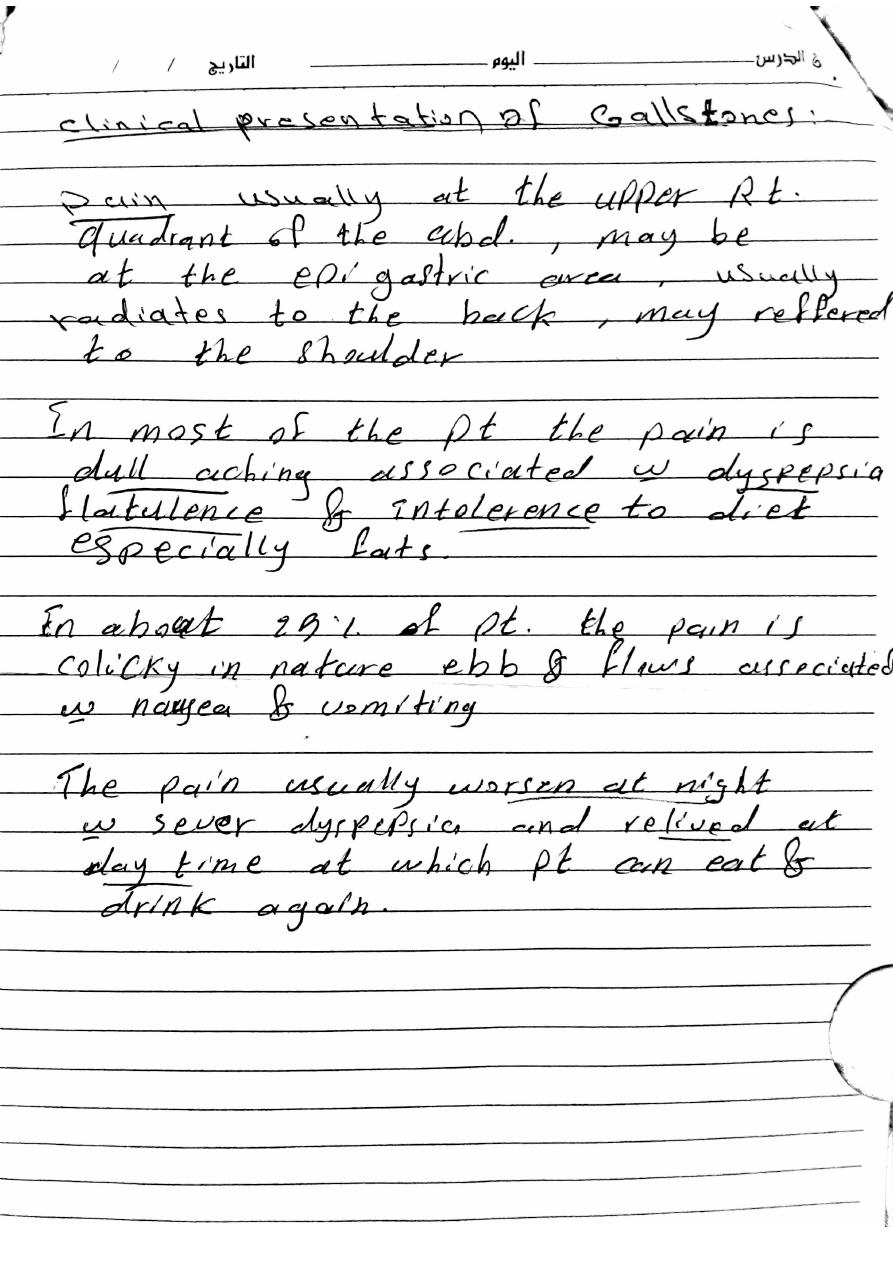 التاريخ / / اليوم الدرس
clinical presentation of Gallstones:
pain usually at the upper Rt.
quadrant of the abd., may be
at the epigastric area, usually
radiates to the back, may reffered
to the shoulder
In most of the pt the pain is
dull aching associated w dyspepsia
flatulence & intolerence to diet
especially fats.
In about 25% of pt. the pain is
colicky in nature ebb & flows associated
w nausea & vomiting
The pain usually worsen at night
w sever dyspepsia and relived at
day time at which pt can eat &
drink again.